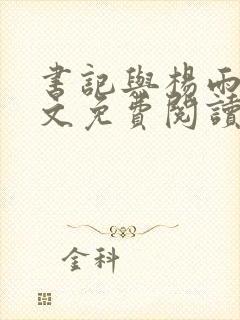 書記與楊雨
文免費閱讀
金科